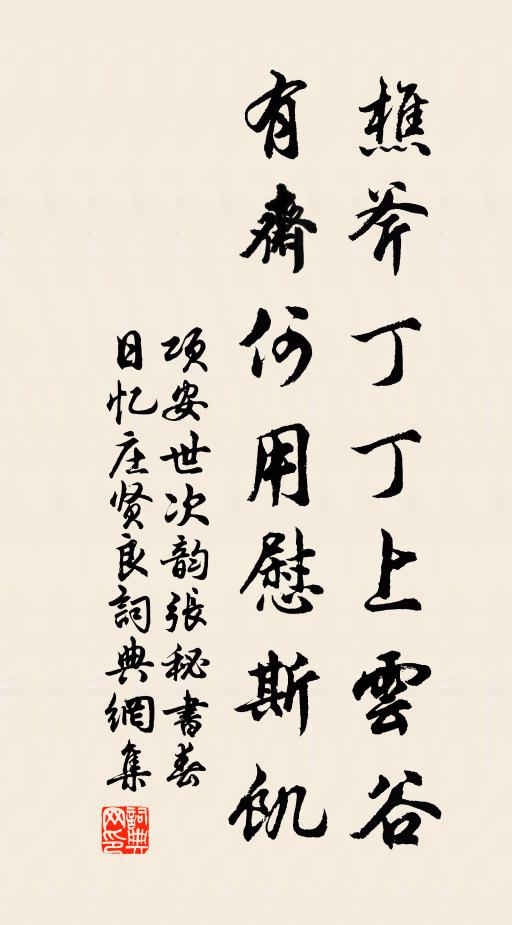 樵斧丁丁上雲谷
有齋何用慰斯飢
项安世次韵張秘書春
日忆庄贤良詞典網集
詞典
网印